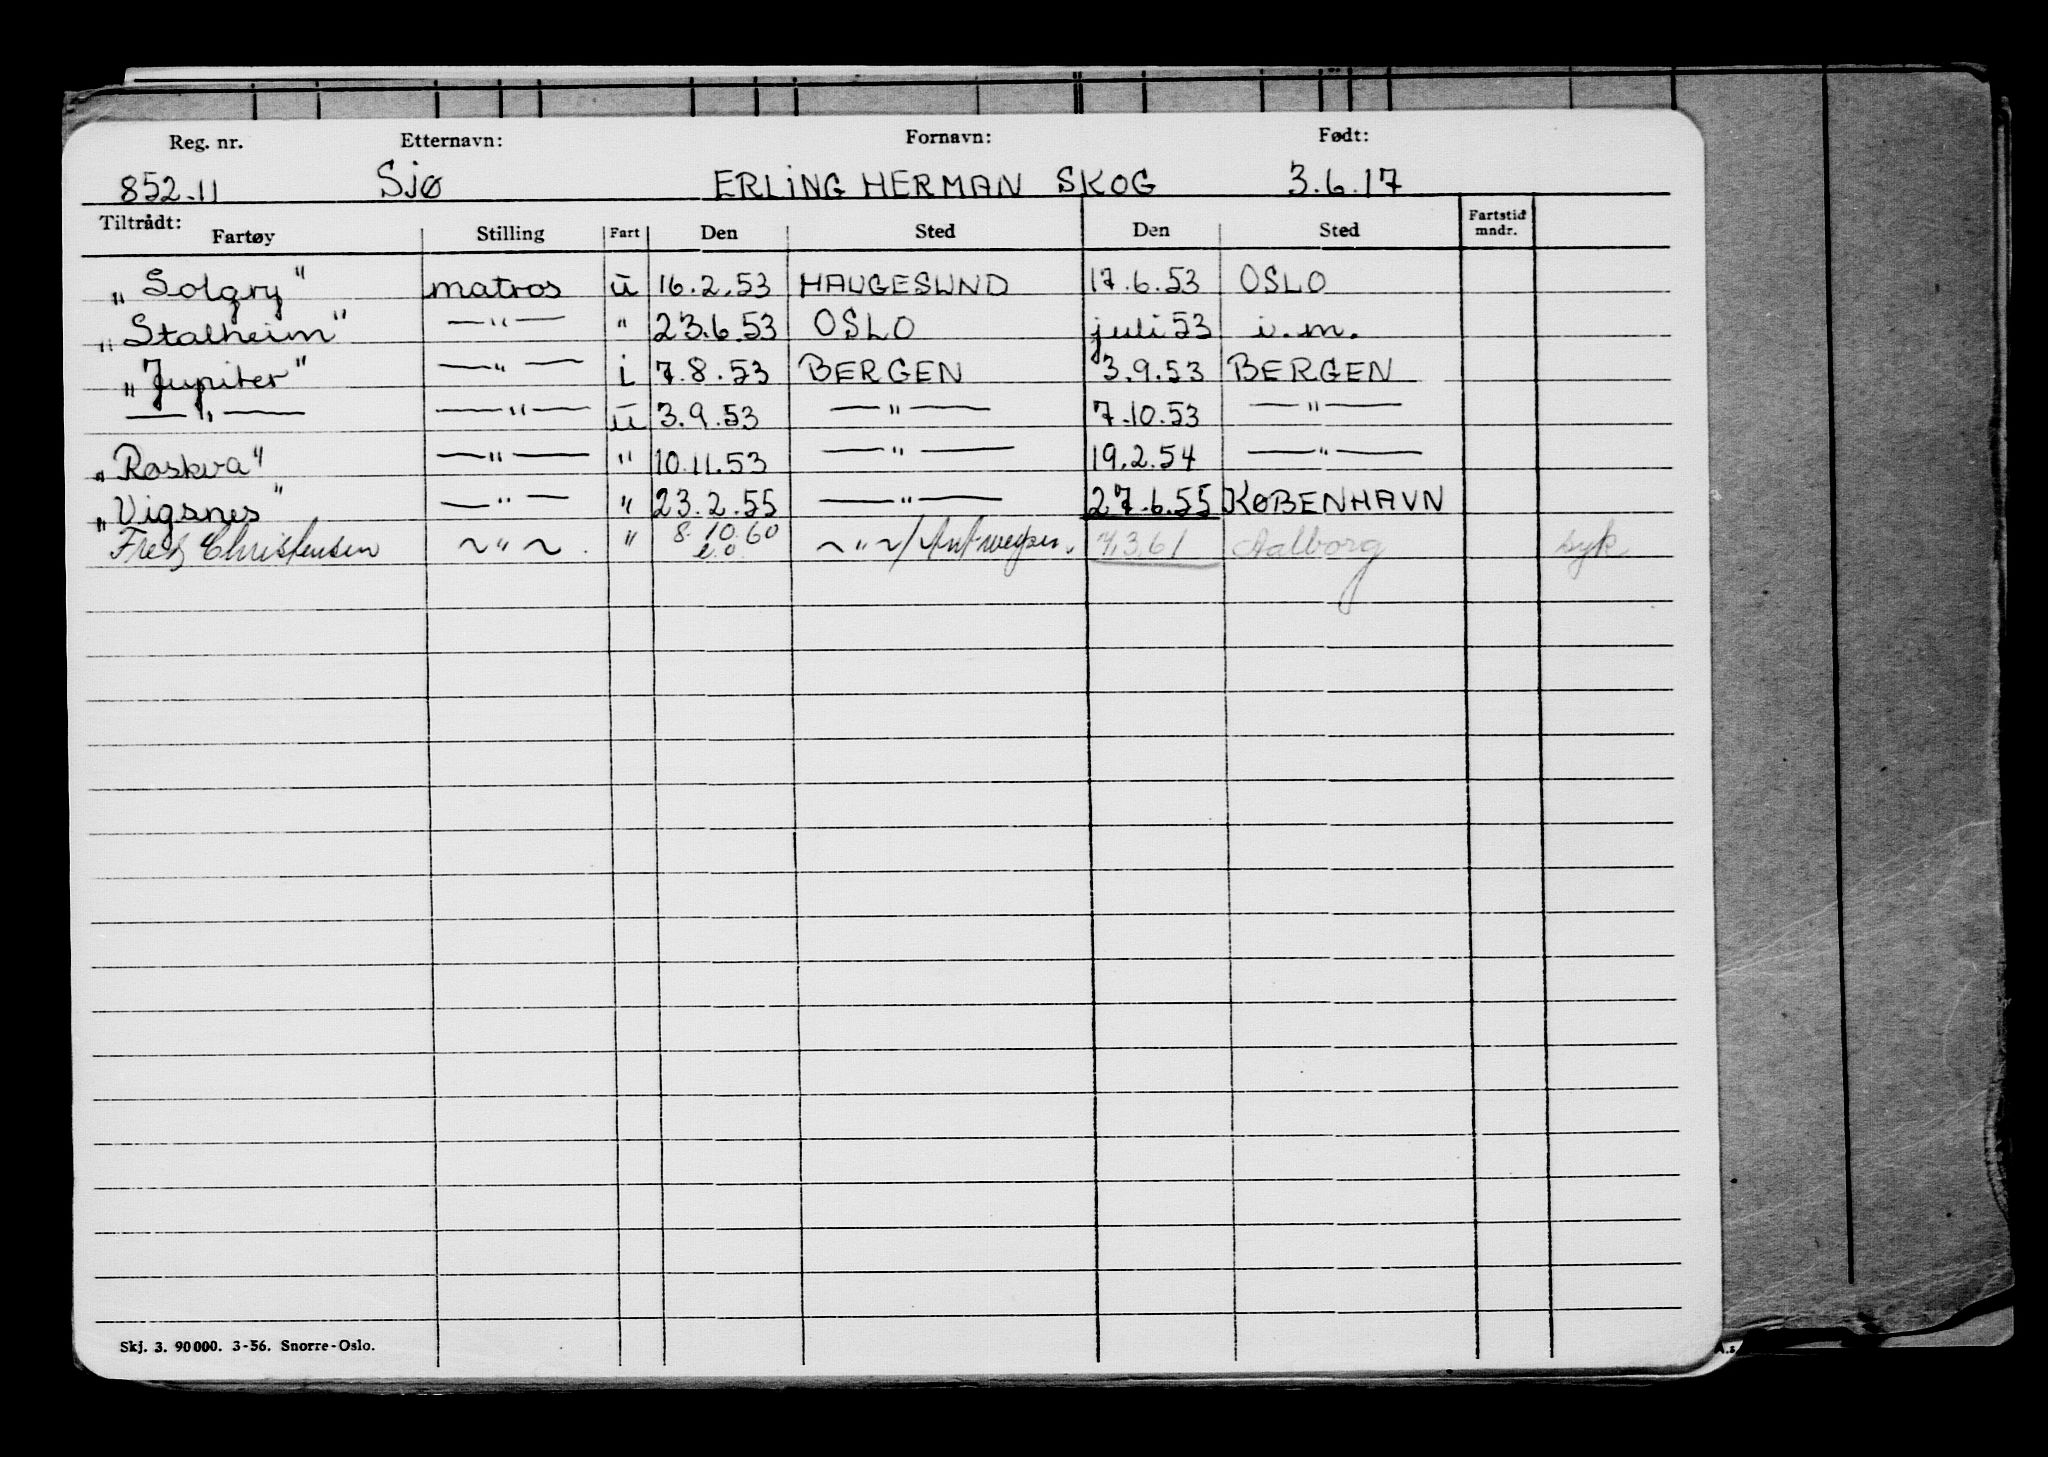 Reg. nr. Etternavn: Fornavn: Født:
852.11 SJØ ERLING HERMAN SKOG 3.6.17
Tiltrådt:
Fartøy Stilling Fart Den Sted Den Sted Fartstid mndr.
„Solgry" matros ū 16.2.53 HAUGESUND 17.6.53 OSLO
„Stalheim" —"— " 23.6.53 OSLO juli 53 i.m.
„Jupiter" —"— i 7.8.53 BERGEN 3.9.53 BERGEN
—"— —"— ū 3.9.53 —"— 7.10.53 —"—
„Roskva" —"— " 10.11.53 —"— 19.2.54 —"—
„Vigsnes" —"— " 23.2.55 —"— 27.6.55 KØBENHAVN
Fred Christensen ~"~ " 8.10.60 ~"~/Antwerpen. 7.3.61 Aalborg syk
e.o.
Skj. 3. 90 000. 3-56. Snorre-Oslo.
A.s